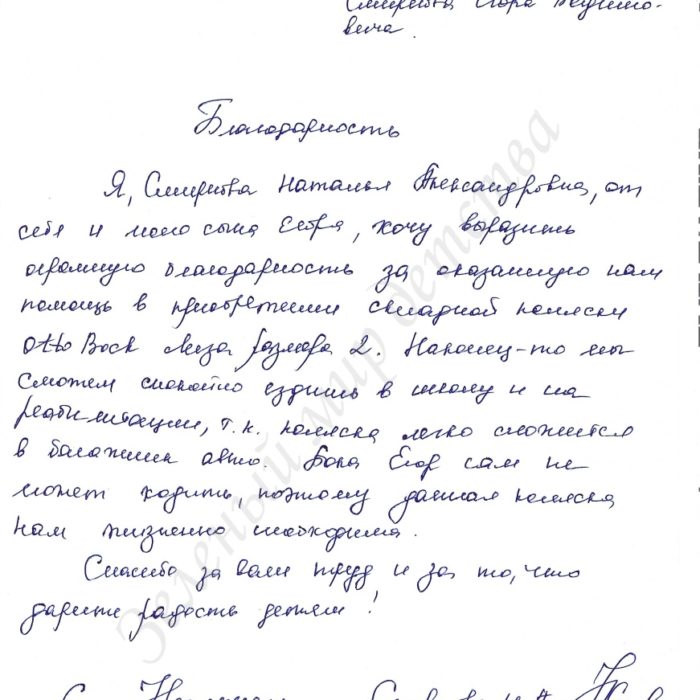 Смирнова Егора
вича.
Благодарность
Я, Смирнова Наталья Александровна, от
себя и моего сына Егора, хочу выразить
огромную благодарность за оказанную нам
помощь в приобретении складной коляски
Otto Bock Лиза размера 2. Наконец-то мы
сможем спокойно ездить в школу и на
реабилитации, т.к. коляска легко сложится
в багажник авто. Пока Егор сам не
может ходить, поэтому данная коляска
нам жизненно необходима.
Спасибо за ваш труд и за то, что
дарите радость детям!
Зеленый мир детства